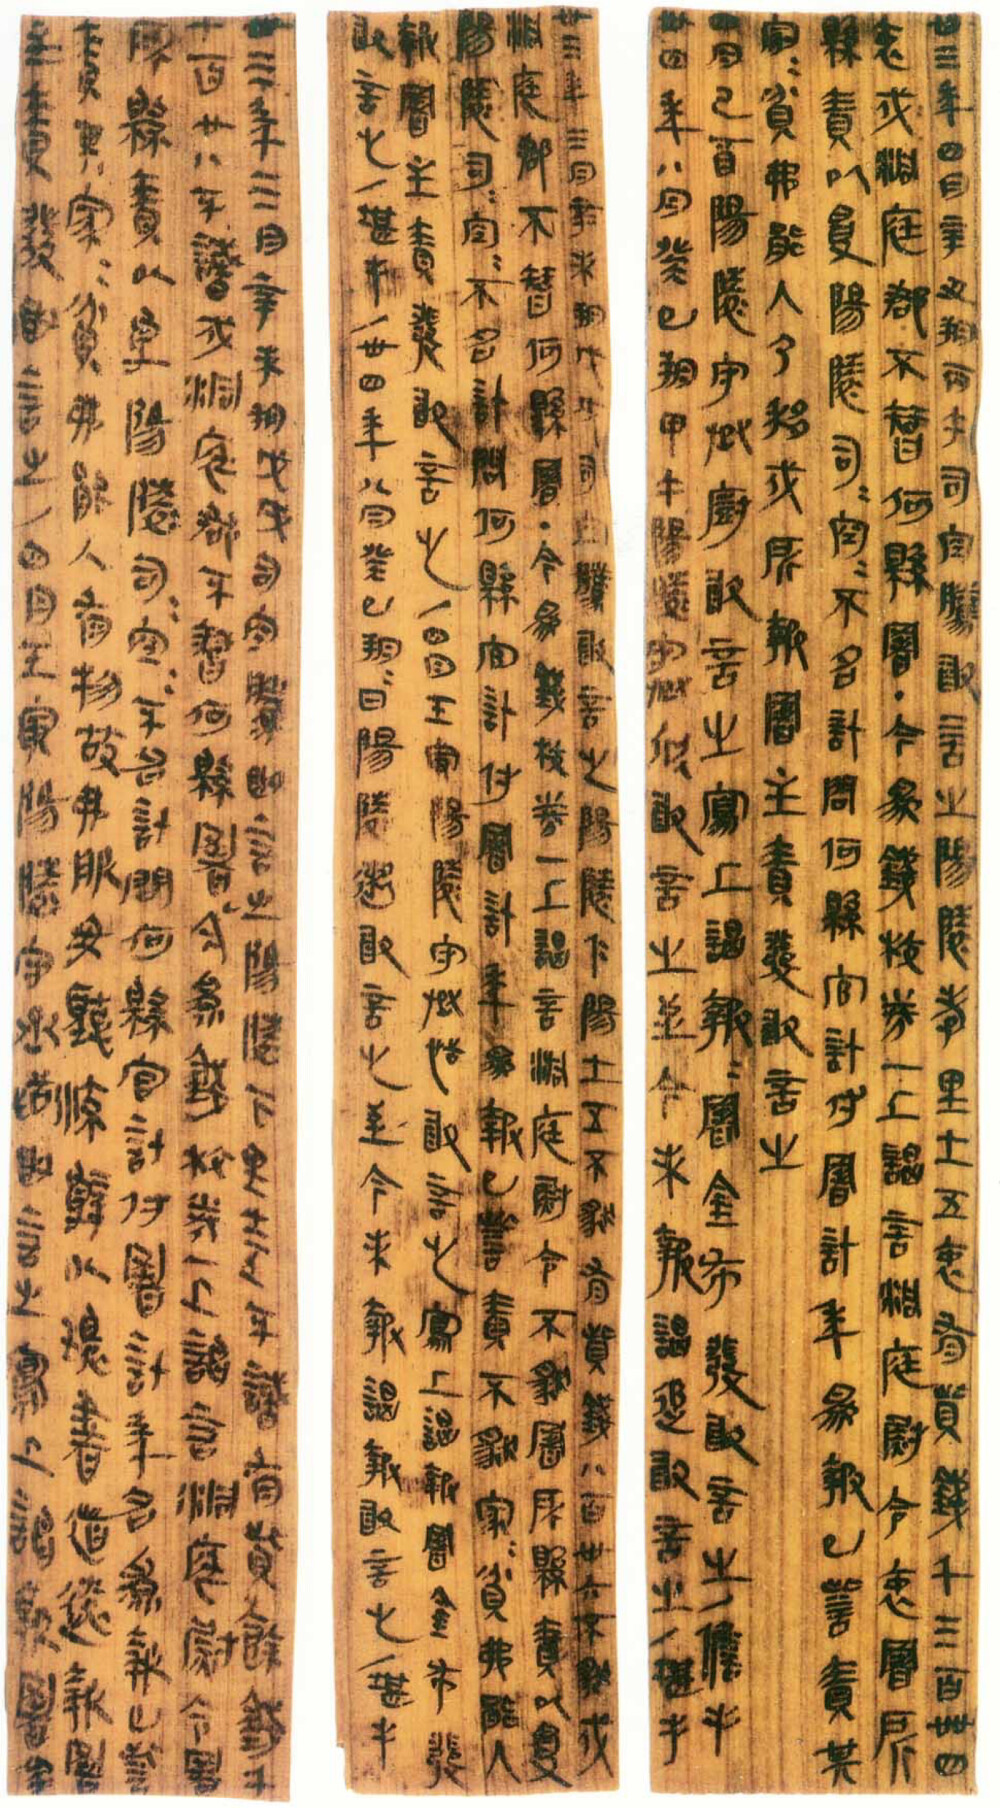 卅三年四月辛丑朔丙午司空騰敢言之陽陵孝里士五衷有貲錢千三百卌四
衷戍洞庭郡不智何縣署·今爲錢校券一上謁言洞庭尉令衷署所
縣責以受陽陵司=空=不名計問何縣官計付署計年爲報已訾責其
家=貧弗能入乃移戍所報署主責發敢言之
四月己酉陽陵守丞廚敢言之寫上謁報=署金布發敢言之/儋手
卅四年八月癸巳朔甲午陽陵守丞欣敢言之至今未報謁追敢言之/堪手
卅三年三月辛未朔戊戌司空騰敢言之陽陵下陽士五不豺有貲錢八百卅六不豺戍
洞庭郡不智何縣署·今爲錢校券一上謁言洞庭尉令不豺署所縣責以受
陽陵司=空=不名計問何縣官計付署計年爲報已訾責不豺家=貧弗能入
報署主責發敢言之/四月壬寅陽陵守丞恬敢言之寫上謁報署金布發
敢言之/堪手/卅四年八月癸巳朔=日陽陵遫敢言之至今未報謁報敢言之/堪手
卅三年三月辛未朔戊戌司空騰敢言之陽陵下里士五不識有貲餘錢千
七百廿八不識戍洞庭郡不智何縣署今爲錢校券一上謁言洞庭尉令署
所縣責以受陽陵司=空=不名計問何縣官計付署計年名爲報已訾
責其家=貧弗能入有物故弗服毋聽流辭以環書道遠報署
主責發敢言之/四月壬寅陽陵守丞恬敢言之寫上謁報署金